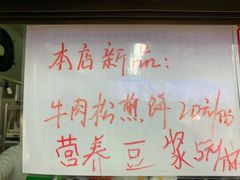 本店新品：
牛肉松煎饼20元/份
营养豆浆5元/杯